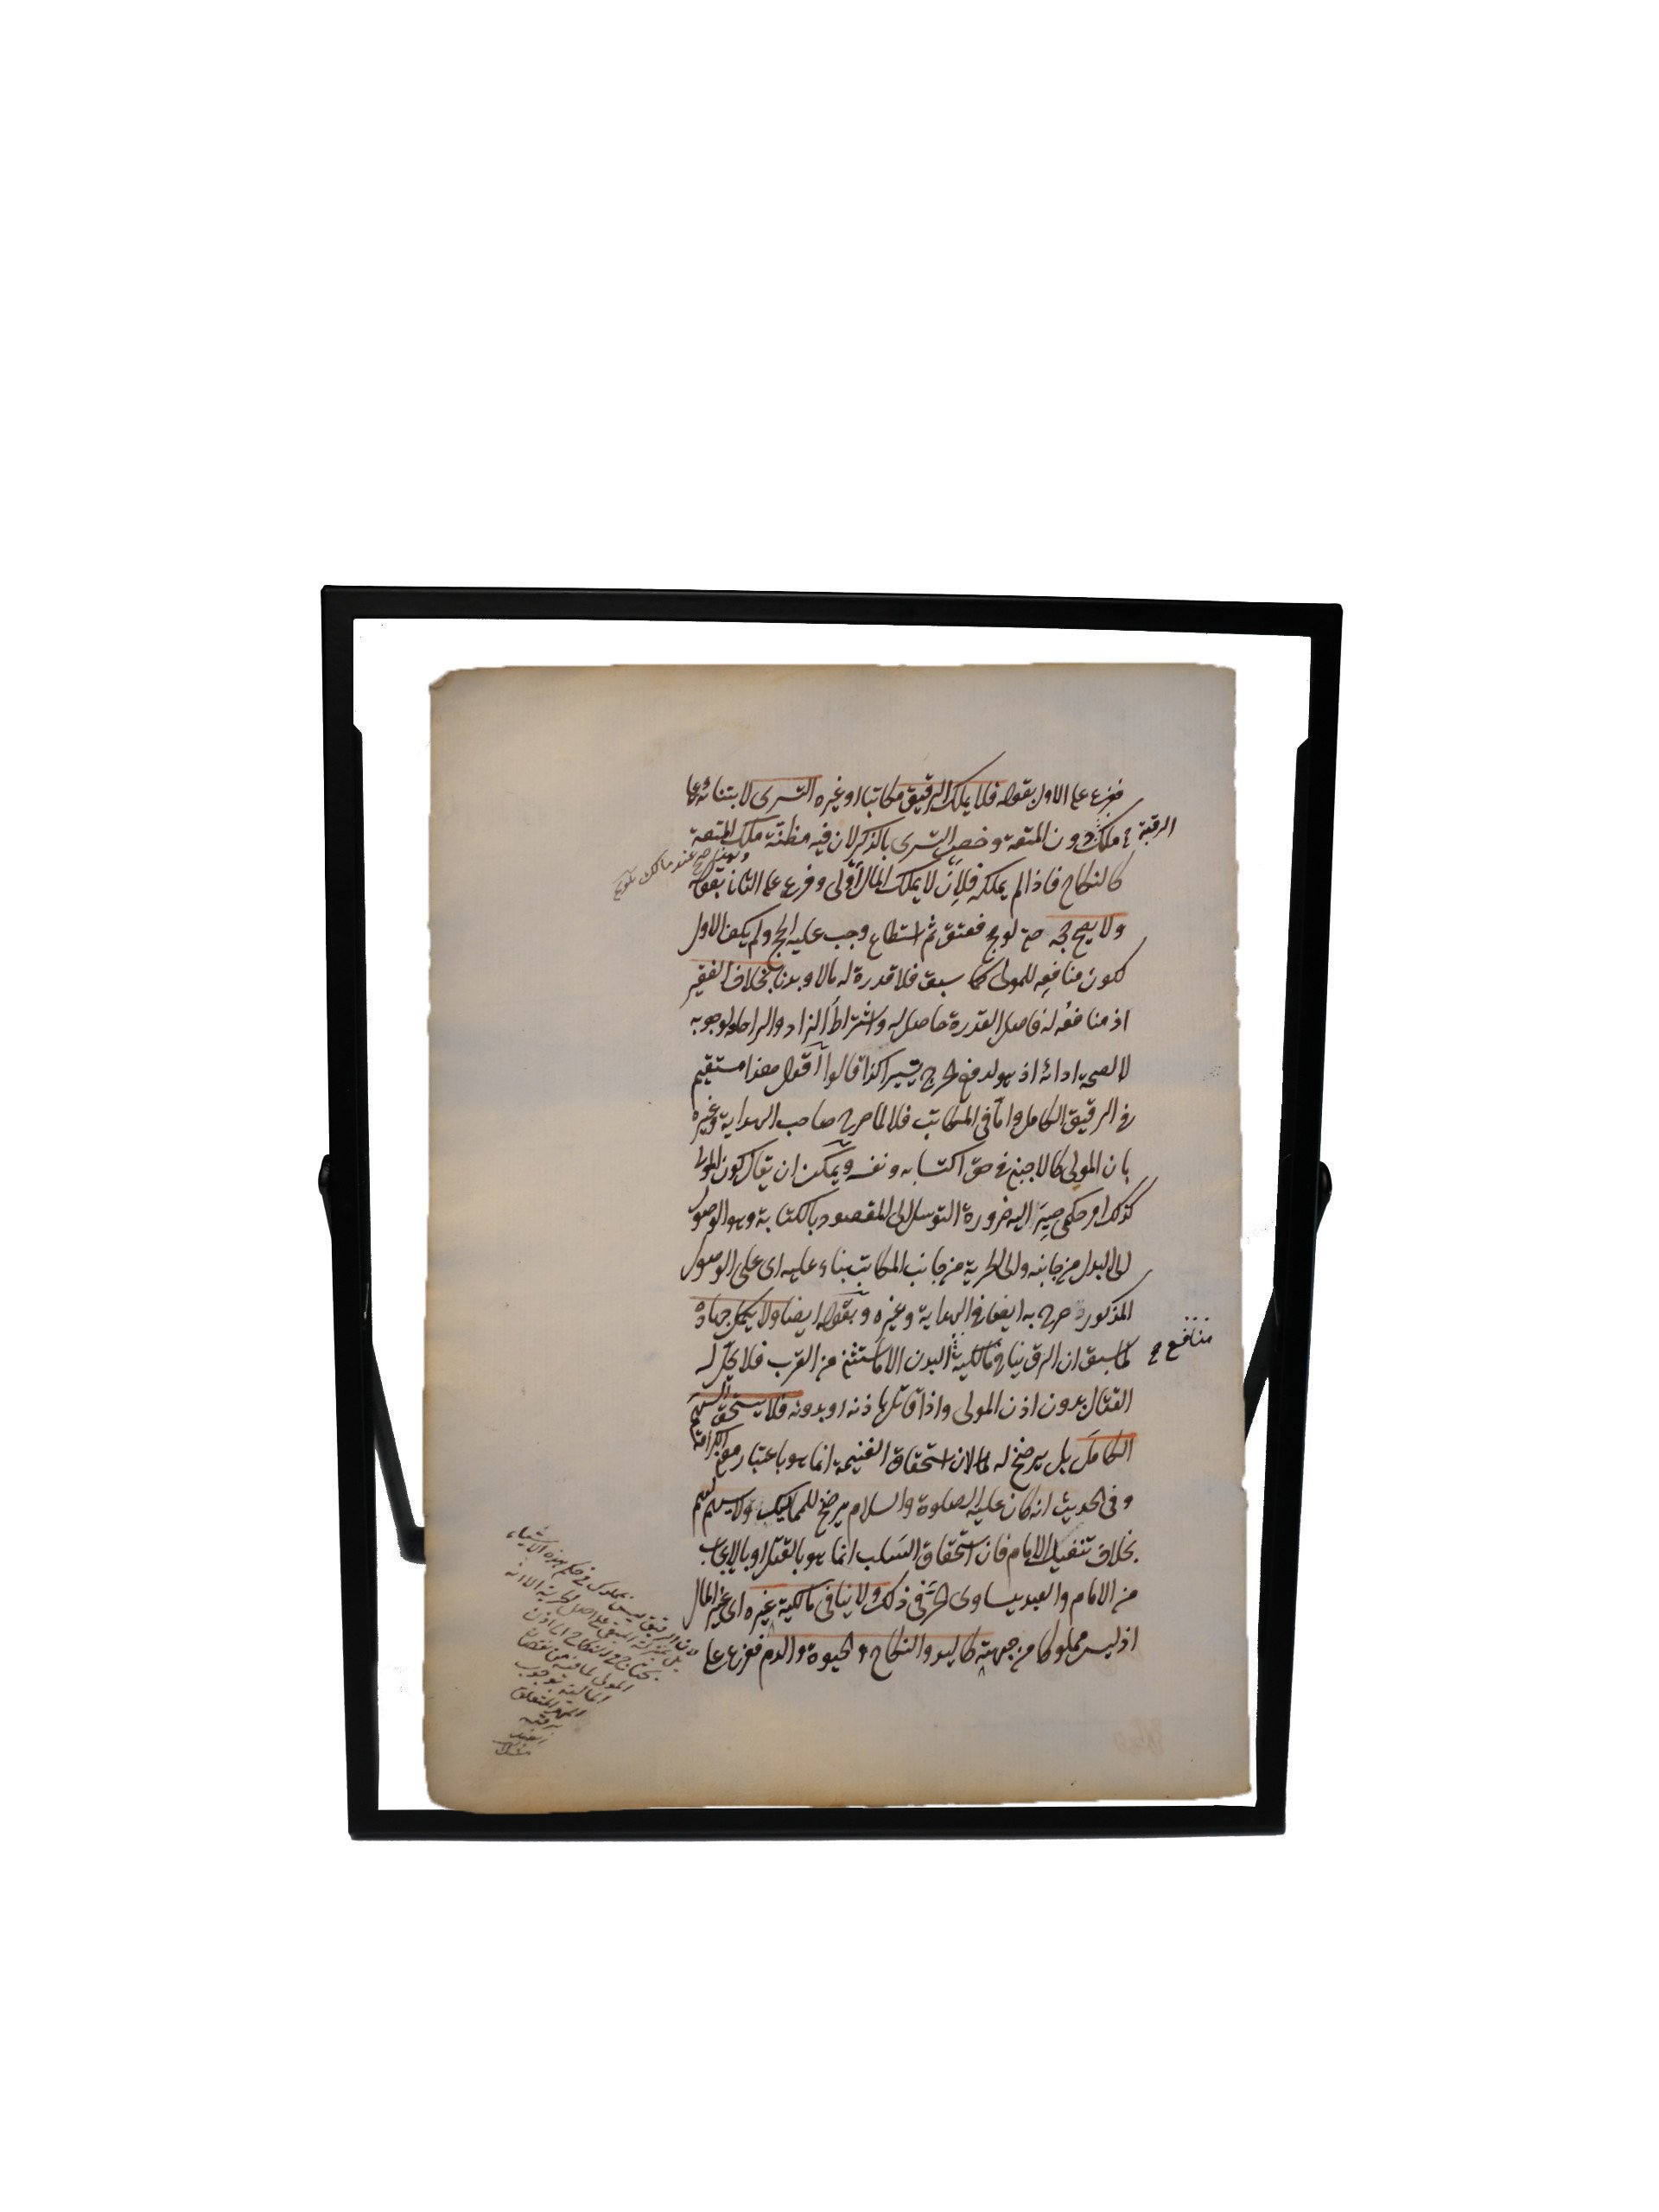 ففرع على الاول بقوله فلا يملك الرقيق مكاتبا او غيره التسرى لابتنائه على
ملك دون المتعة وخص التسرى بالذكر لان فيه مظنة ملك المتعة
الرقبة
كالنكاح فاذا لم يملكه فلان لا يملك المال اولى وفرع على الثانى بقوله
ولا يصح حجه حتى لو حج فعتق ثم استطاع وجب عليه الحج ولم يكف الاول
لكون منافعه للمولى كما سبق فلا قدرة له مالا وبدنا بخلاف الفقير
اذ منافعه له فاصل القدرة حاصل له واشتراط الزاد والراحلة لوجوبه
لا لصحة ادائه اذ هو لدفع الحرج تيسيرا كذا قالوا اقول هذا مستقيم
فى الرقيق الكامل واما فى المكاتب فلا لما صرح صاحب الهداية وغيره
بان المولى كالاجنبى فى حق اكتسابه ونفسه ويمكن ان يقال كون المولى
كذلك امر حكمى صير اليه ضرورة التوسل الى المقصود بالكتابة وهو الوصول
الى البدل من جانبه والى الحرية من جانب المكاتب بناء عليه اى على الوصول
المذكور صرح به ايضا فى الهداية وغيره وبقوله ايضا ولا يكمل جهاده
لما سبق ان الرق ينافى مالكية البدن الا ما استثنى من القرب فلا يحل له
منافع
القتال بدون اذن المولى واذا قاتل باذنه او بدونه فلا يستحق السهم
الكامل بل يرضخ له لان استحقاق الغنيمة انما هو باعتبار معنى الكرامة
وفى الحديث انه كان عليه الصلوة والسلام يرضخ للمماليك ولا يسهم لهم
بخلاف تنفيل الامام فان استحقاق السلب انما هو بالقتل او بالايجاب
من الامام والعبد يساوى الحر فى ذلك ولا ينافى مالكية غيره اى غير المال
اذ ليس مملوكا من جهته كاليد والنكاح والحيوة والدم ففرع على
لان الرقيق ليس بمملوك فى حكم هذه الاشياء
بل بمنزلة المبقى على اصل الحرية الا انه
يحتاج فى النكاح الى اذن
المولى لما فيه من نقصان
المالية بوجوب
المهر المتعلق
برقبته